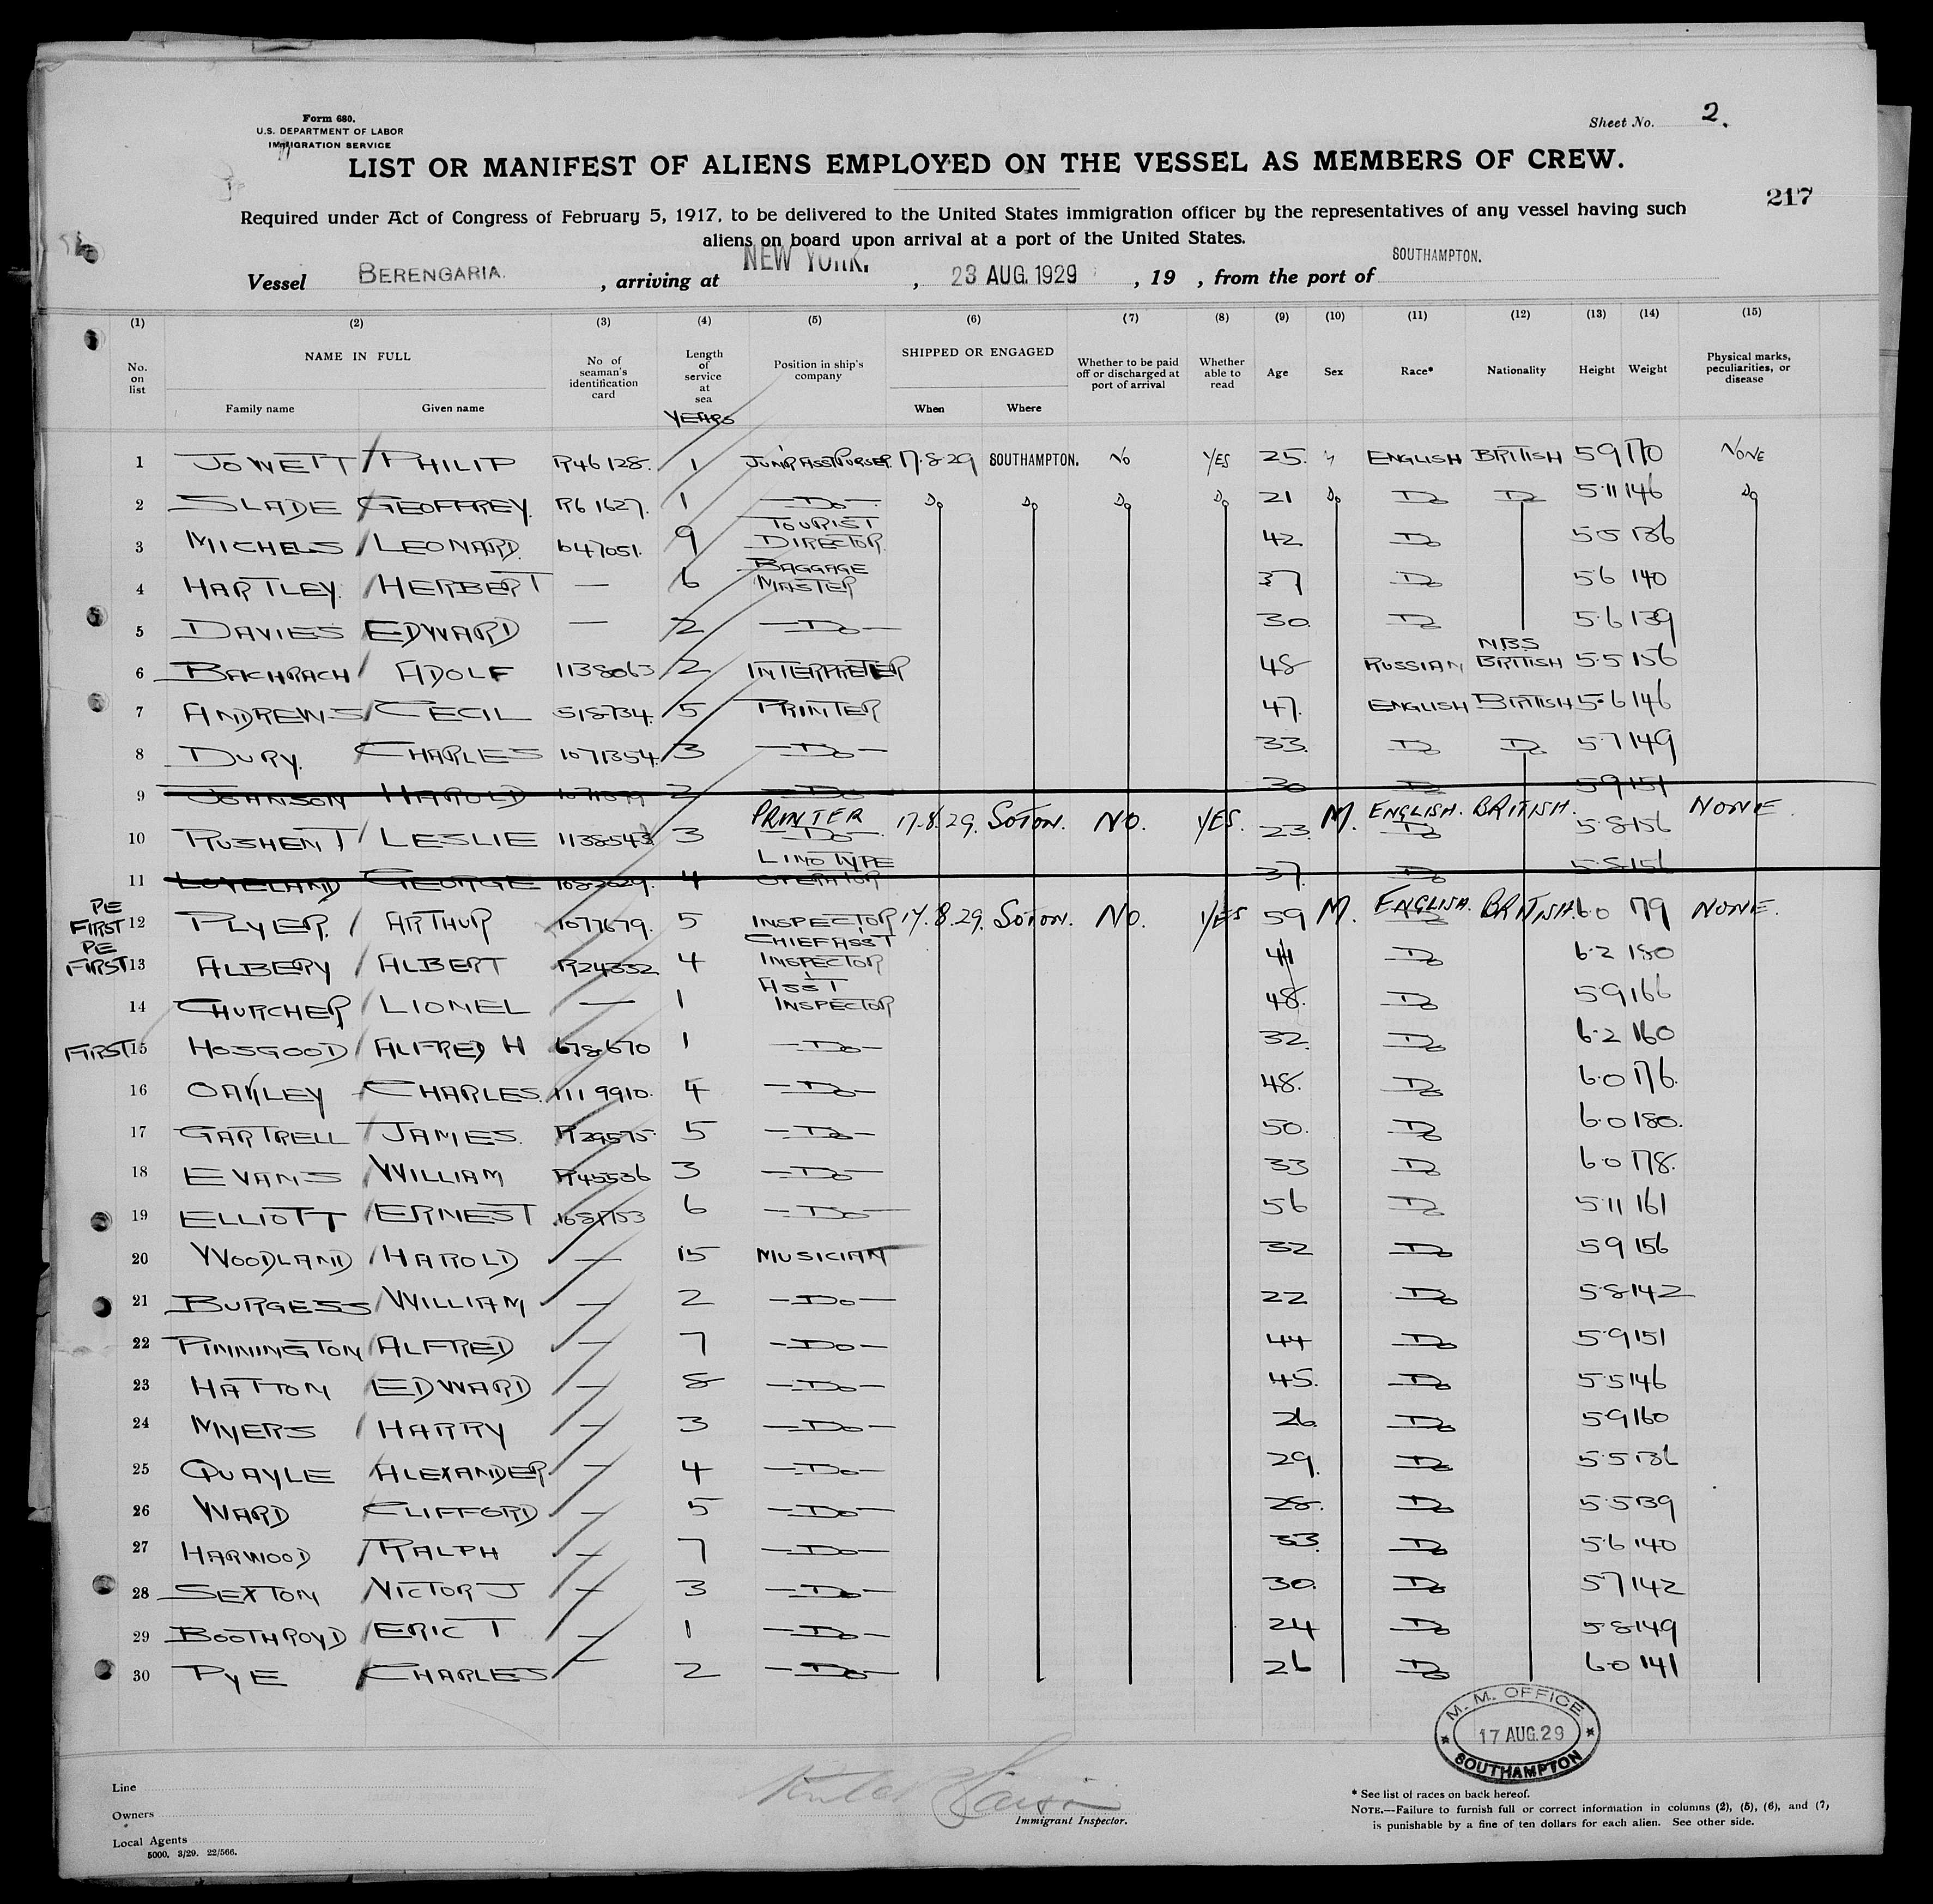 Form 680.
U.S. DEPARTMENT OF LABOR
IMMIGRATION SERVICE
Sheet No. 2.
LIST OR MANIFEST OF ALIENS EMPLOYED ON THE VESSEL AS MEMBERS OF CREW.
217
Required under Act of Congress of February 5, 1917, to be delivered to the United States immigration officer by the representatives of any vessel having such
aliens on board upon arrival at a port of the United States.
Vessel BERENGARIA. , arriving at NEW YORK. , 23 AUG. 1929 , 19 , from the port of SOUTHAMPTON.
(1) (2) (3) (4) (5) (6) (7) (8) (9) (10) (11) (12) (13) (14) (15)
No. on list NAME IN FULL Family name Given name No. of seaman's identification card Length of service at sea YEARS Position in ship's company SHIPPED OR ENGAGED When Where Whether to be paid off or discharged at port of arrival Whether able to read Age Sex Race* Nationality Height Weight Physical marks, peculiarities, or disease
1 JOWETT PHILIP R46128. 1 JUN'R ASST PURSER 17.8.29 SOUTHAMPTON. NO YES 25. ENGLISH BRITISH 5.9 170 NONE
2 SLADE GEOFFREY. R61627. 1 DO DO DO DO DO 21 DO DO DO 5.11 146 DO
3 MICHELS LEONARD. 647051. 9 TOURIST DIRECTOR. 42 DO 5.5 136
4 HARTLEY. HERBERT — 6 BAGGAGE MASTER 37 DO 5.6 140
5 DAVIES EDWARD — 2 DO 30. DO 5.6 139
6 BACHRACH ADOLF 1138063 2 INTERPRETER 48 RUSSIAN N.B.S BRITISH 5.5 156
7 ANDREWS CECIL 518734. 5 PRINTER 47. ENGLISH BRITISH 5.6 146
8 DURY. CHARLES 1071354. 3 DO 33. DO DO 5.7 149
9 JOHNSON HAROLD 2 DO 30 DO 5.9 151
10 RUSHENT LESLIE 1138543 3 PRINTER DO 17.8.29. SOTON. NO. YES. 23. M. ENGLISH. DO BRITISH. 5.8 156 NONE.
11 LOVELAND GEORGE 4 LINOTYPE OPERATOR 37. DO 5.8 156
PE FIRST 12 PLYER. ARTHUR 1077679. 5 INSPECTOR 17.8.29. SOTON. NO. YES 59 M. ENGLISH. BRITISH. 6.0 179 NONE.
PE FIRST 13 ALBERY ALBERT R24332 4 CHIEF ASST INSPECTOR 44 DO 6.2 180
14 CHURCHER LIONEL — 1 ASST INSPECTOR 48. DO 5.9 166
FIRST 15 HOSGOOD ALFRED H 678670 1 DO 32. DO 6.2 160
16 OAKLEY CHARLES. 1119910. 4 DO 48. DO 6.0 176.
17 GARTRELL JAMES. R29575. 5 DO 50. DO 6.0 180.
18 EVANS WILLIAM R45536 3 DO 33 DO 6.0 178.
19 ELLIOTT ERNEST 6 DO 56 DO 5.11 161
20 WOODLAND HAROLD — 15 MUSICIAN 32 DO 5.9 156
21 BURGESS WILLIAM — 2 DO 22 DO 5.8 142
22 PINNINGTON ALFRED — 7 DO 44 DO 5.9 151
23 HATTON EDWARD — 8 DO 45. DO 5.5 146
24 MYERS HARRY — 3 DO 26. DO 5.9 160
25 QUAYLE ALEXANDER — 4 DO 29. DO 5.5 136
26 WARD CLIFFORD — 5 DO 28. DO 5.5 139
27 HARWOOD RALPH — 7 DO 33. DO 5.6 140
28 SEXTON VICTOR J — 3 DO 30. DO 5.7 142
29 BOOTHROYD ERIC T — 1 DO 24 DO 5.8 149
30 PYE CHARLES — 2 DO 26 DO 6.0 141
M. M. OFFICE
17 AUG. 29
SOUTHAMPTON
Line
Owners
Local Agents
5000. 3/29. 22/566.
Immigrant Inspector.
* See list of races on back hereof.
NOTE.—Failure to furnish full or correct information in columns (2), (5), (6), and (7),
is punishable by a fine of ten dollars for each alien. See other side.